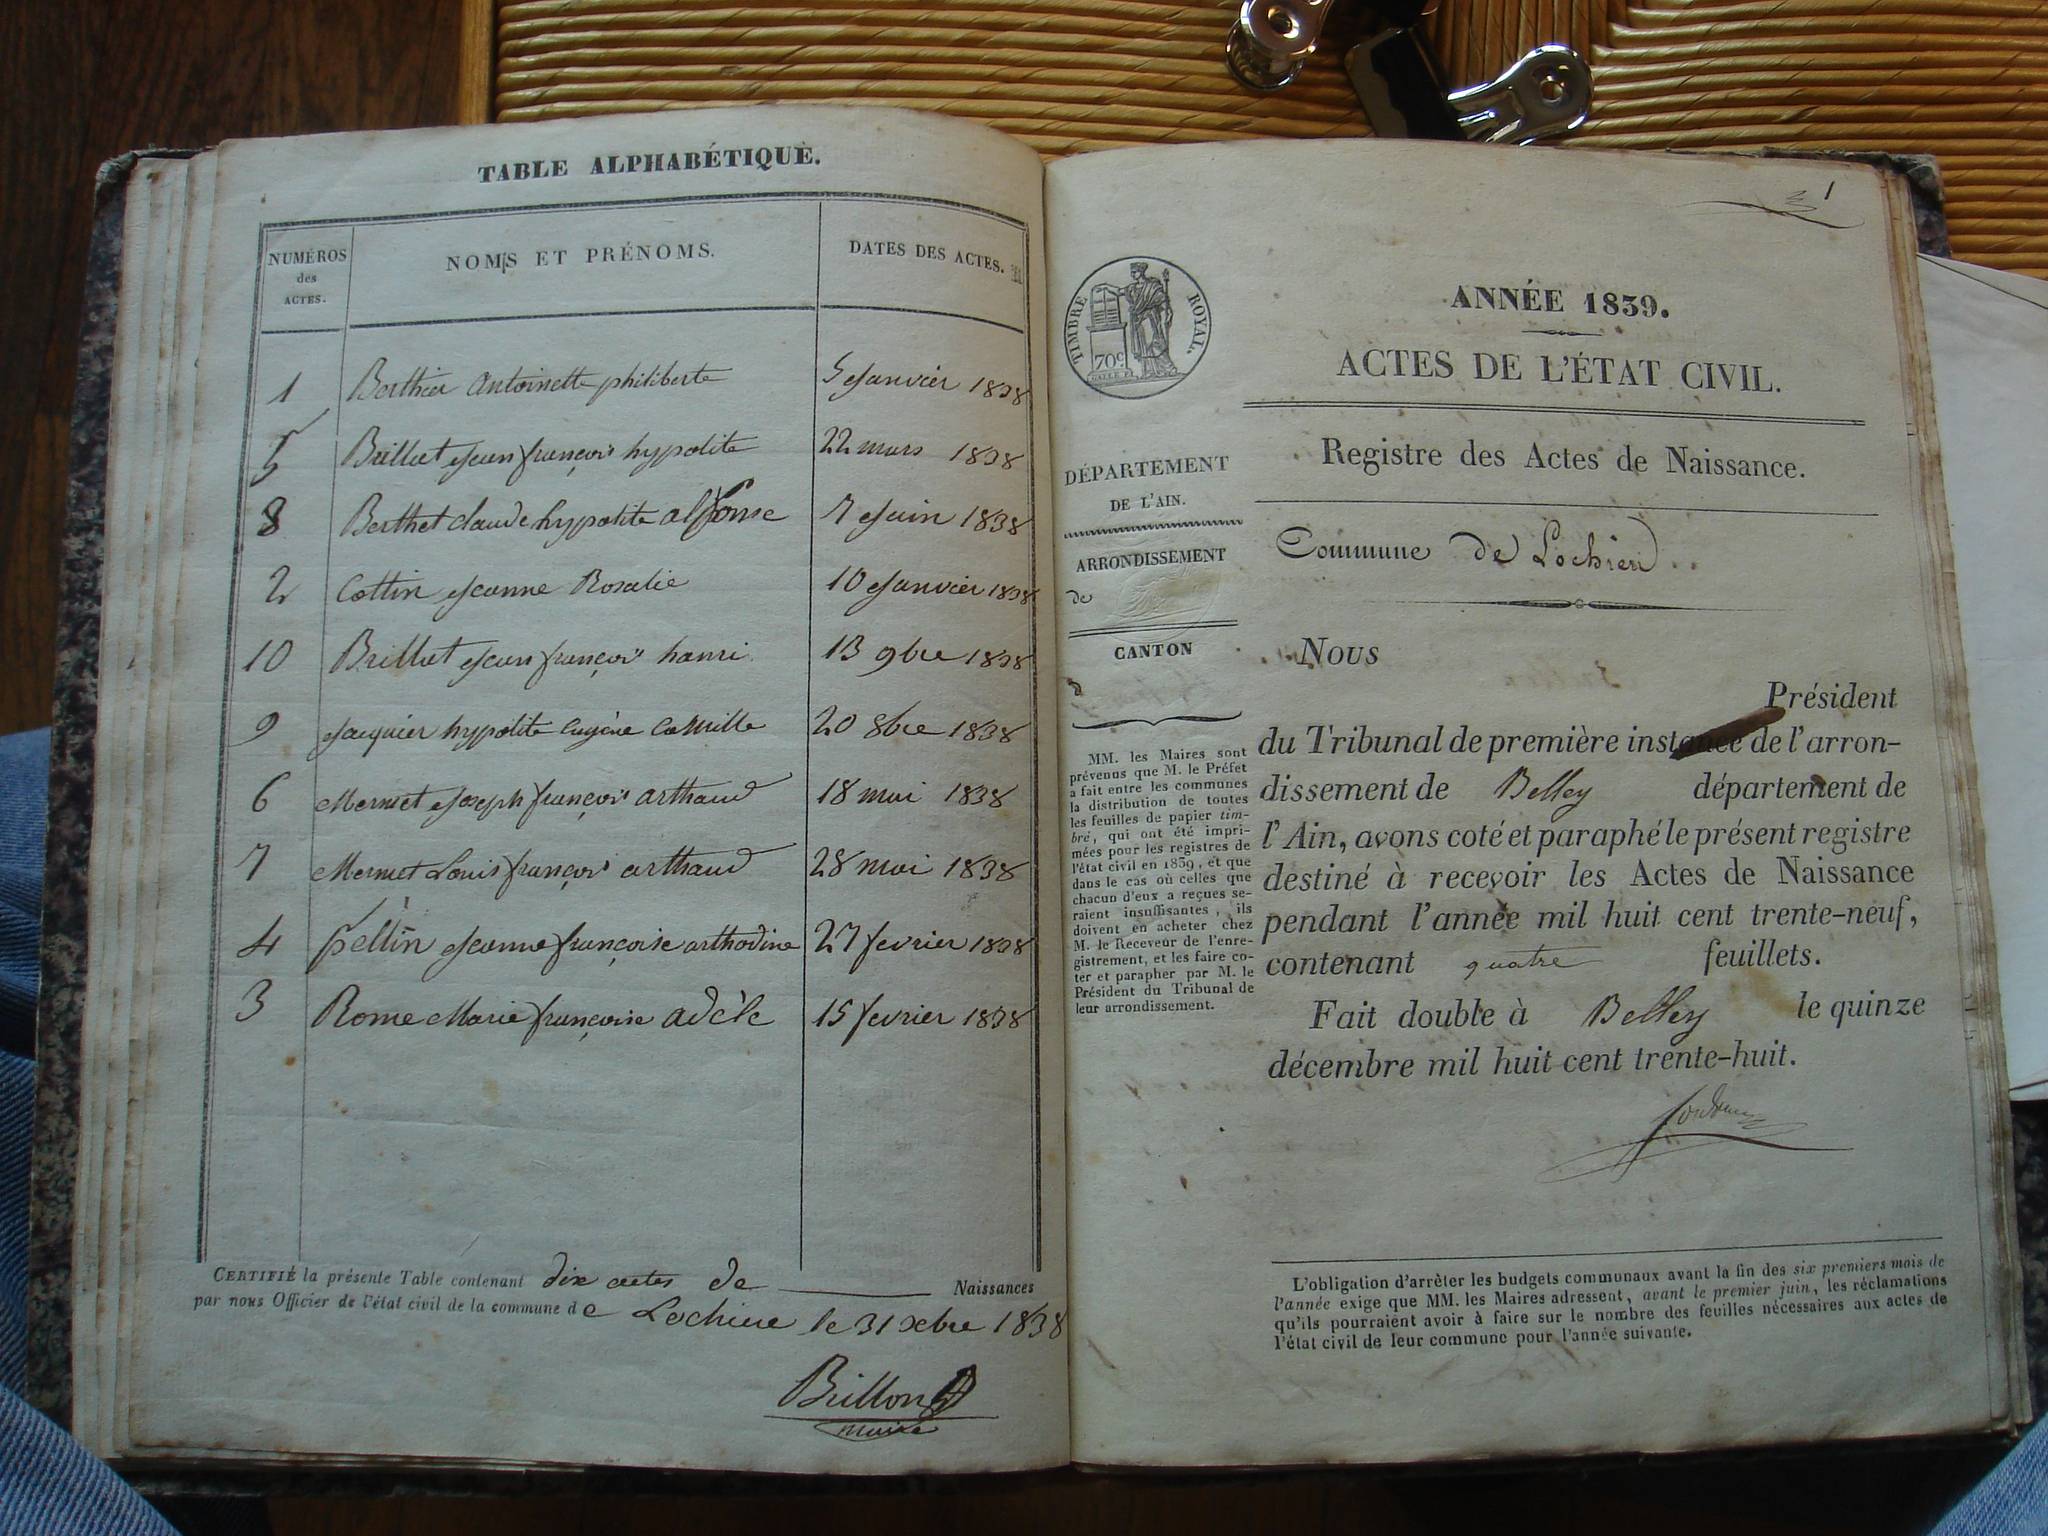 TABLE ALPHABÉTIQUE.
NUMÉROS des ACTES.
NOMS ET PRÉNOMS.
DATES DES ACTES.
1 Berthier antoinette philiberte 5 Janvier 1838
5 Brillat Jean françois hypolite 22 mars 1838
8 Berthet claude hypolite alfonse 7 Juin 1838
2 Cottin Jeanne Rosalie 10 Janvier 1838
10 Brillat Jean françois hanri 13 9bre 1838
9 Jacquier hypolite Eugène Camille 20 8bre 1838
6 Mermet Joseph françois arthaud 18 mai 1838
7 Mermet Louis françois arthaud 28 mai 1838
4 pellin Jeanne françoise arthodine 27 fevrier 1838
3 Rome Marie françoise adèle 15 fevrier 1838
CERTIFIÉ la présente Table contenant dix actes de Naissances
par nous Officier de l'état civil de la commune de Lochieu le 31 xbre 1838
Brillon
maire
1
TIMBRE ROYAL.
70c
ANNÉE 1839.
ACTES DE L'ÉTAT CIVIL.
Registre des Actes de Naissance.
Commune de Lochieu
DÉPARTEMENT
DE L'AIN.
ARRONDISSEMENT
de
CANTON
d
MM. les Maires sont
prévenus que M. le Préfet
a fait entre les communes
la distribution de toutes
les feuilles de papier tim-
bré, qui ont été impri-
mées pour les registres de
l'état civil en 1839, et que
dans le cas où celles que
chacun d'eux a reçues se-
raient insuffisantes, ils
doivent en acheter chez
M. le Receveur de l'enre-
gistrement, et les faire co-
ter et parapher par M. le
Président du Tribunal de
leur arrondissement.
Nous
Président
du Tribunal de première instance de l'arron-
dissement de Belley département de
l'Ain, avons coté et paraphé le présent registre
destiné à recevoir les Actes de Naissance
pendant l'année mil huit cent trente-neuf,
contenant quatre feuillets.
Fait double à Belley le quinze
décembre mil huit cent trente-huit.
L'obligation d'arrêter les budgets communaux avant la fin des six premiers mois de
l'année exige que MM. les Maires adressent, avant le premier juin, les réclamations
qu'ils pourraient avoir à faire sur le nombre des feuilles nécessaires aux actes de
l'état civil de leur commune pour l'année suivante.